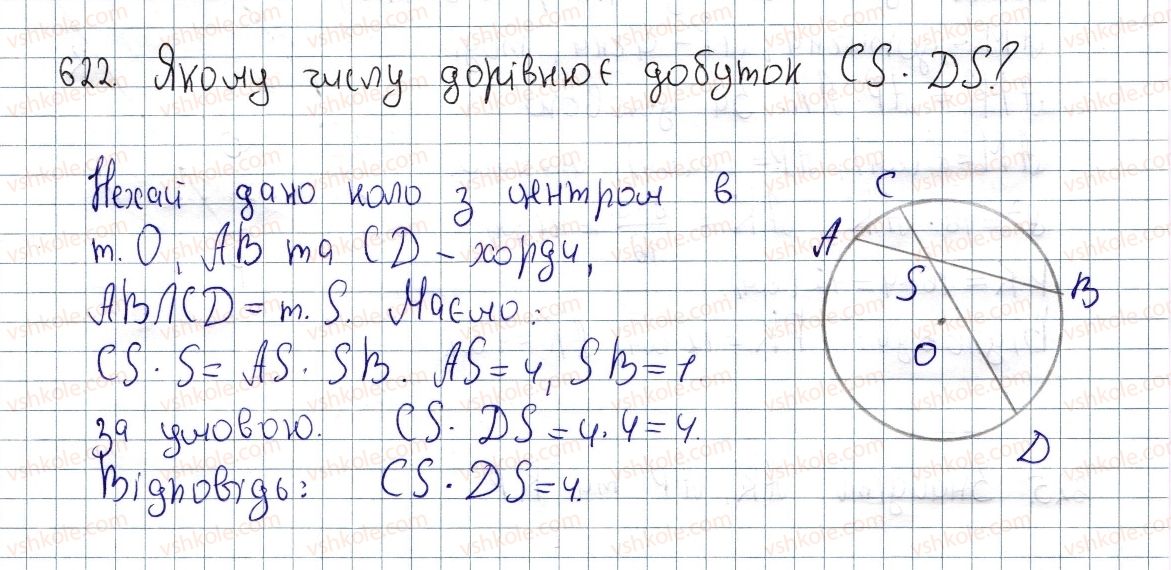 622. Якому числу дорівнює добуток CS · DS?
Нехай дано коло з центром в
т. О, AB та CD – хорди,
AB∩CD = т. S. Маємо:
CS · S = AS · SB. AS = 4, SB = 1
за умовою. CS · DS = 4 · 4 = 4.
Відповідь: CS · DS = 4.
C
A
S
B
O
D
vshkole.com